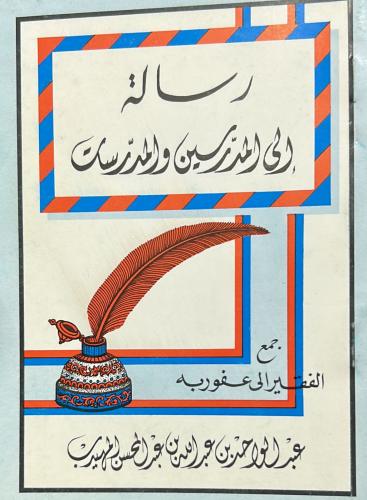 رسالة
إلى المدرسين والمدرسات
جمع
الفقير إلى عفو ربه
عبد الواحد بن عبد الله بن عبد المحسن المهيدب